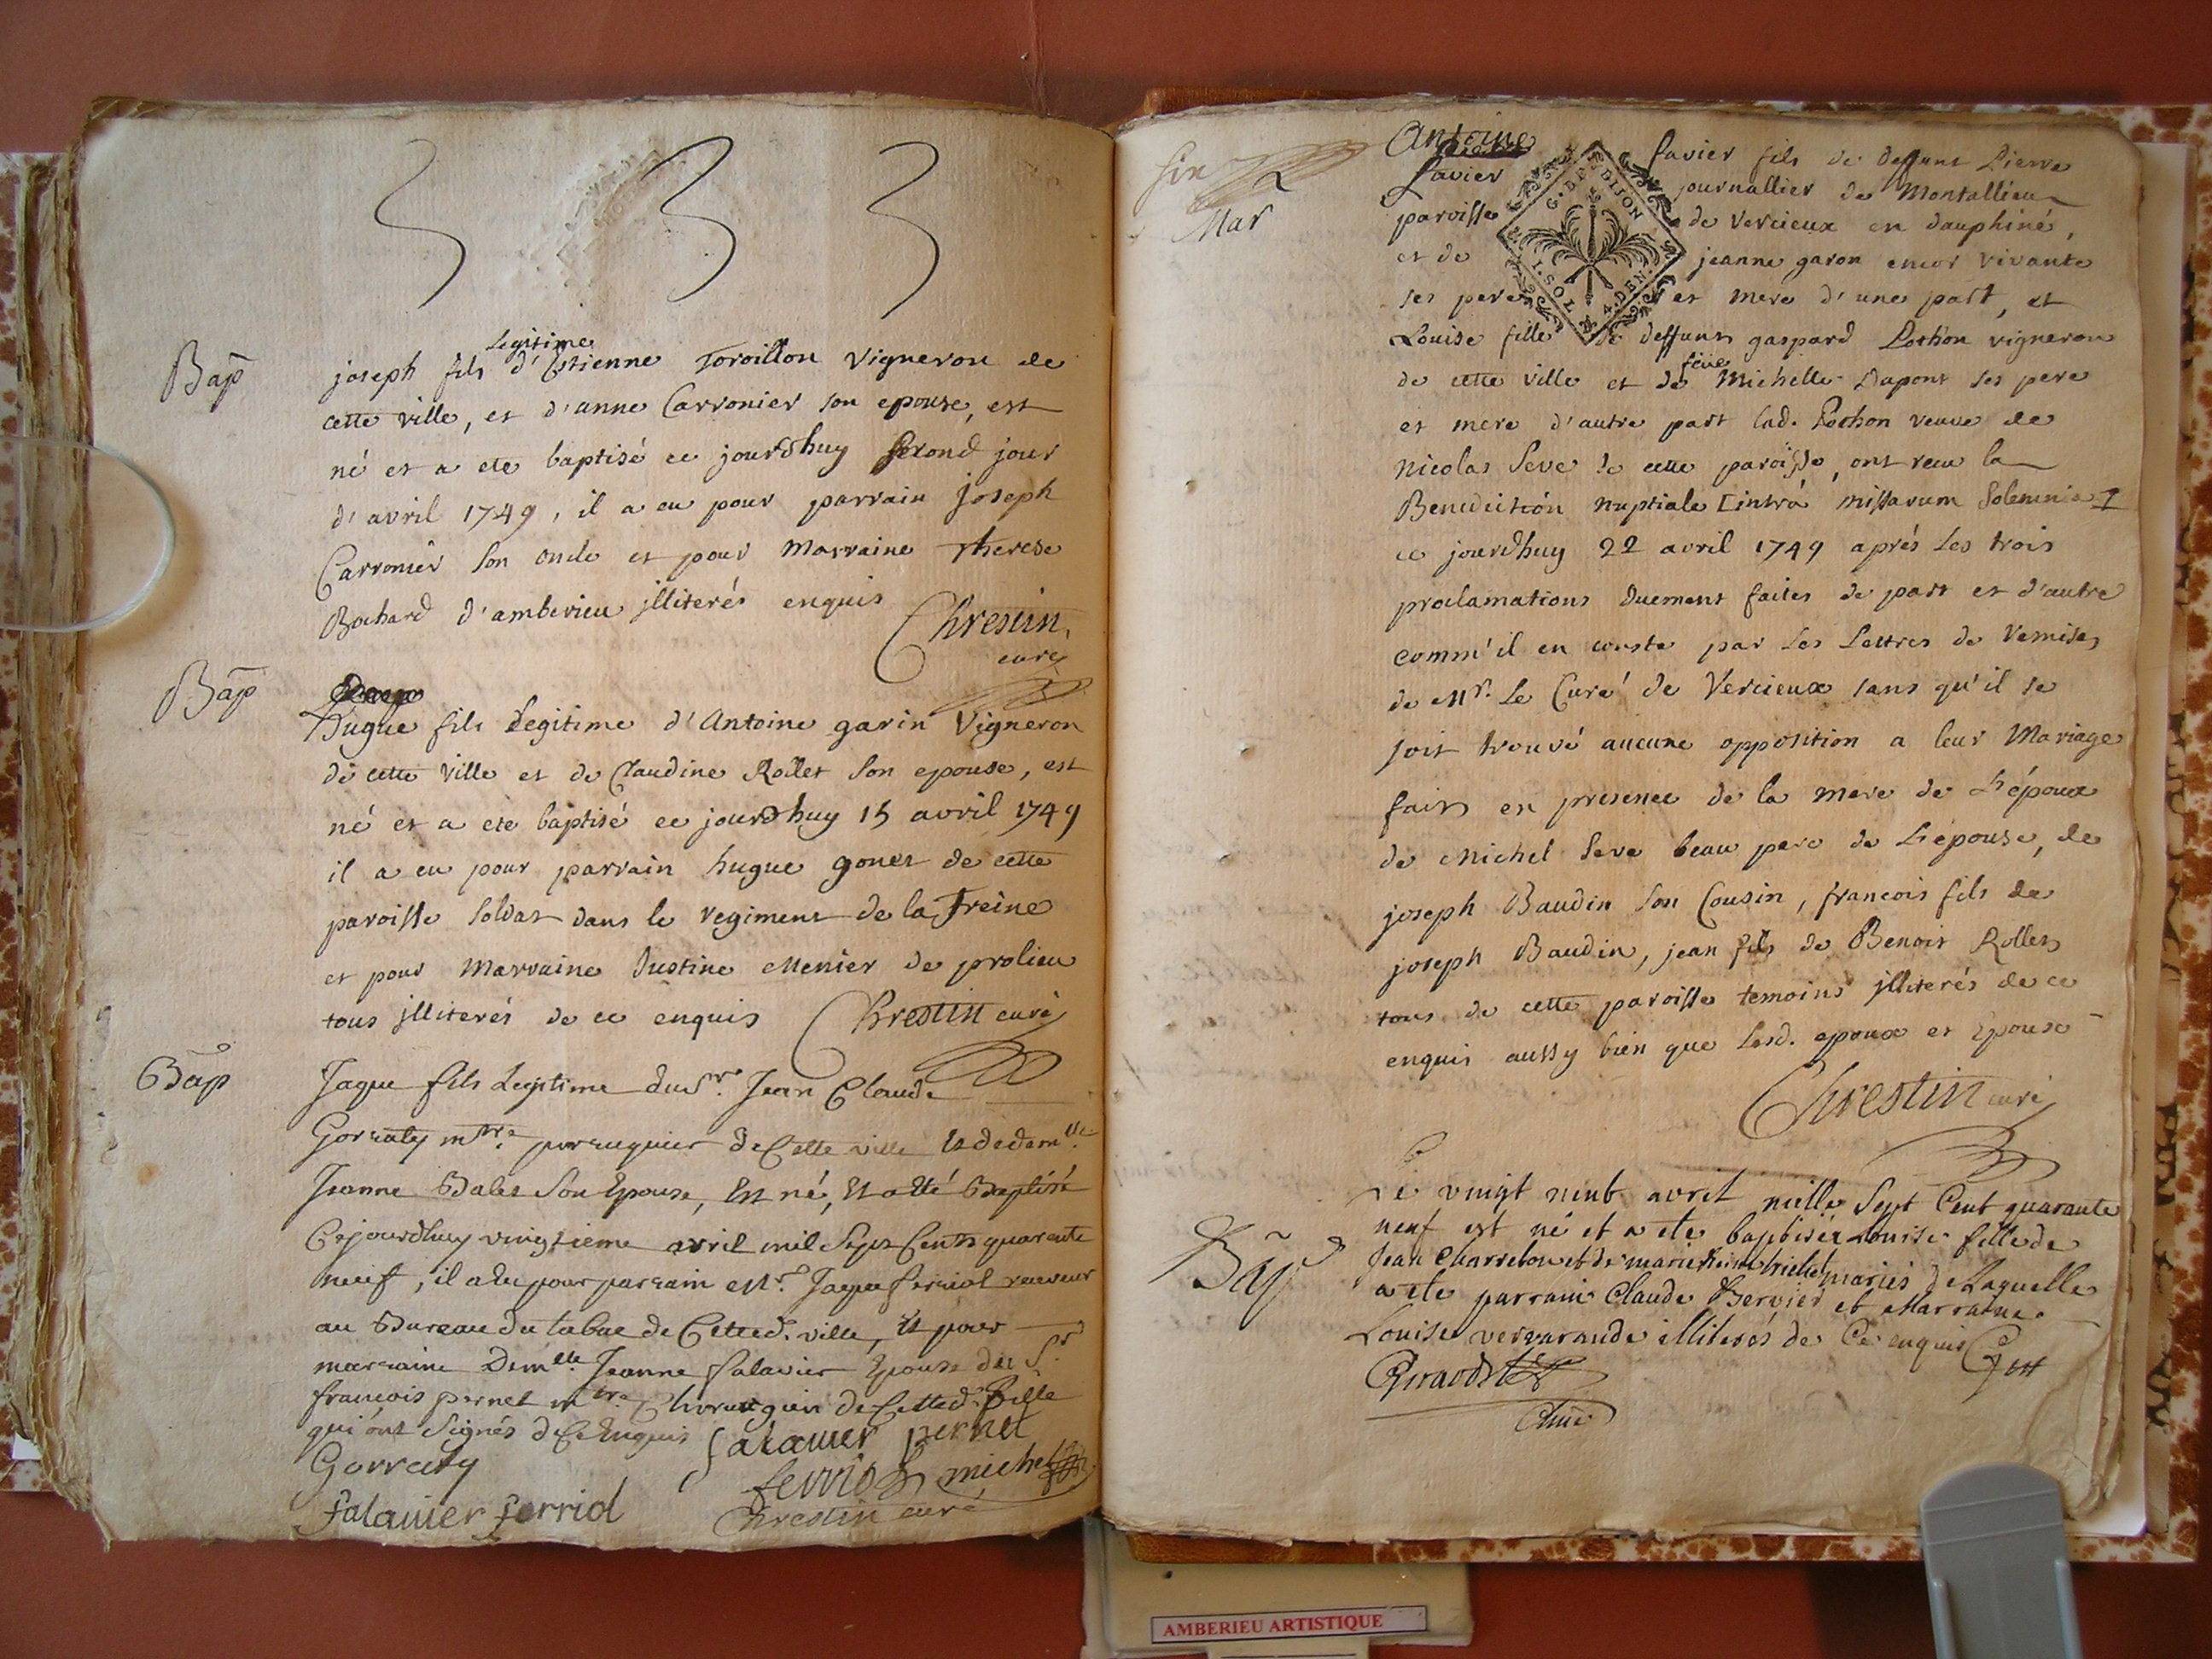 Bap
Legitime
joseph fils d'Estienne Toroillon vigneron de
cette ville, et d'anne Carronier son epouse, est
né et a eté baptisé ce jourdhuy second jour
d'avril 1749, il a eu pour parrain joseph
Carronier son oncle et pour Marraine therese
Bochard d'amberieu jlliterés enquis
Chrestin,
curé
Bap
hugue fils Legitime d'Antoine garin Vigneron
de cette ville et de Claudine Rollet son epouse, est
né et a eté baptisé ce jourdhuy 15 avril 1749
il a eu pour parrain hugue gonet de cette
paroisse soldat dans le regiment de la
et pour Marraine Justine Menier de prolieu
tous jlliterés de ce enquis Chrestin curé
Bap
Jaque fils Legitime du Sr. Jean Claude
Gorraty mtre perruquier de Cette ville Et de demlle
Jeanne Balet Son Epouse, Est né, Et a Eté Baptisé
Cejourdhuy vingtieme avril mil Sept Cents quarente
neuf, il a Eu pour parrain Mr. Jaque ferriol receveur
au Bureau du tabac de Cetted. ville, Et pour
marraine Demlle Jeanne falavier Epouse du Sr
françois pernet mtre Chirurgien de Cetted. Ville
qui ont Signés de Ce Enquis falavier pernet
Gorraty ferriol michel
falavier ferriol Chrestin curé
Mar
Antoine favier fils de deffunt Pierre
favier journallier de Montallieu
paroisse de Vercieux en dauphiné,
et de jeanne garon encor vivante
ses pere et mere d'une part, et
G. DE DIJON
1. SOL 4. DEN.
Louise fille de deffunt gaspard Pochon vigneron
feüe
de cette ville et de Michelle Dupont ses pere
et mere d'autre part lad. Pochon veuve de
nicolas Seve de cette paroisse, ont receu la
Benediction nuptiale [intra missarum Solemnia]
ce jourdhuy 22 avril 1749 aprés les trois
proclamations duement faites de part et d'autre
comm'il en conste par les Lettres de remises
de Mr. le Curé de Vercieux sans qu'il se
soit trouvé aucune opposition a leur Mariage
fait en presence de la mere de L'époux
de Michel Seve beau pere de L'épouse, de
joseph Baudin son Cousin, francois fils de
joseph Baudin, jean fils de Benoit Rollet
tous de cette paroisse temoins jlliterés de ce
enquis aussy bien que lesd. epoux et Epouse
Chrestin curé
Bap
Le vingt neuf avril mille Sept Cent quarante
neuf est né et a ete baptisée Louise fille de
Jean Charreton et de marie michel mariés de Laquelle
a ete parrain Claude Bervier et Marraine
Louise illiterés de Ce enquis
AMBERIEU ARTISTIQUE